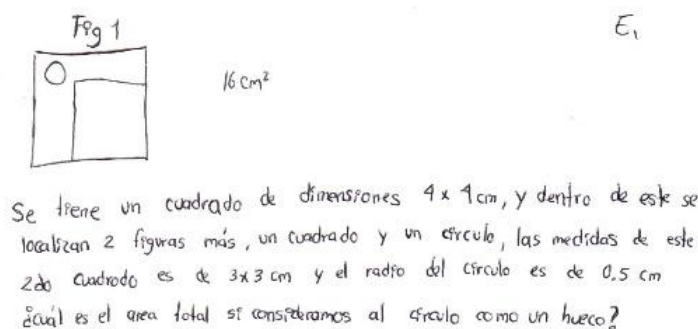 Fig 1
E₁
16 cm²
Se tiene un cuadrado de dimensiones 4 x 4 cm, y dentro de este se
localizan 2 figuras más, un cuadrado y un círculo, las medidas de este
2do cuadrado es de 3x3 cm y el radio del círculo es de 0.5 cm
¿cuál es el area total si consideramos al círculo como un hueco?